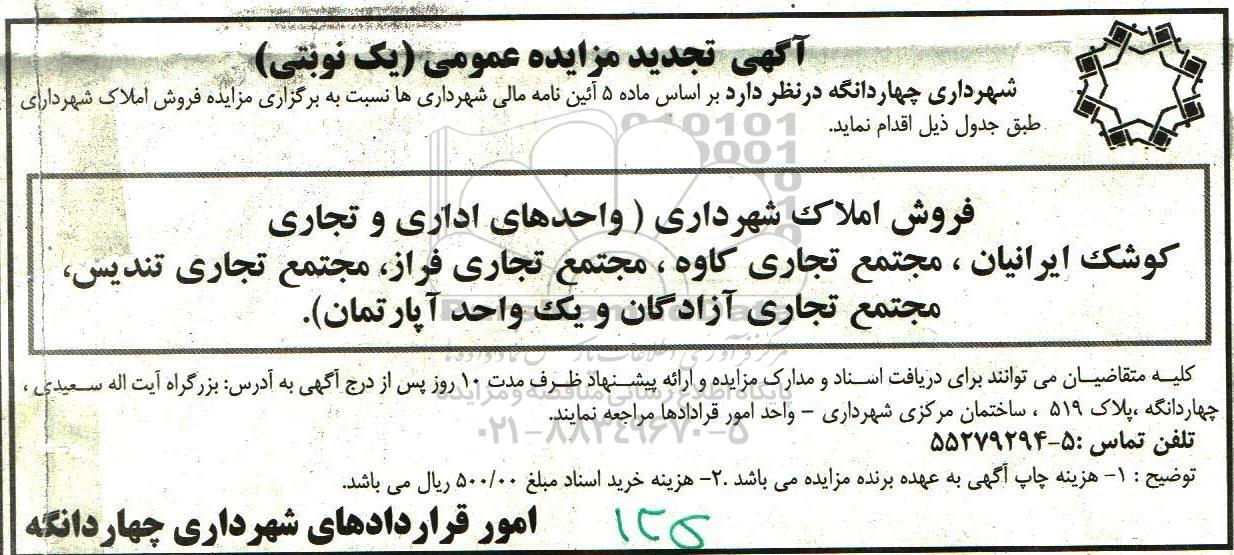 آگهی تجدید مزایده عمومی (یک نوبتی)
شهرداری چهاردانگه درنظر دارد بر اساس ماده ۵ آئین نامه مالی شهرداری ها نسبت به برگزاری مزایده فروش املاک شهرداری
طبق جدول ذیل اقدام نماید.
فروش املاک شهرداری ( واحدهای اداری و تجاری
کوشک ایرانیان ، مجتمع تجاری کاوه ، مجتمع تجاری فراز، مجتمع تجاری تندیس،
مجتمع تجاری آزادگان و یک واحد آپارتمان).
کلیه متقاضیان می توانند برای دریافت اسناد و مدارک مزایده و ارائه پیشنهاد ظرف مدت ۱۰ روز پس از درج آگهی به آدرس: بزرگراه آیت اله سعیدی ،
چهاردانگه ،پلاک ۵۱۹ ، ساختمان مرکزی شهرداری – واحد امور قرادادها مراجعه نمایند.
۰۲۱-۸۸۳۴۹۶۷۰-۵
تلفن تماس :۵-۵۵۲۷۹۲۹۴
توضیح : ۱- هزینه چاپ آگهی به عهده برنده مزایده می باشد .۲- هزینه خرید اسناد مبلغ ۵۰۰/۰۰ ریال می باشد.
امور قراردادهای شهرداری چهاردانگه
۱۲۵